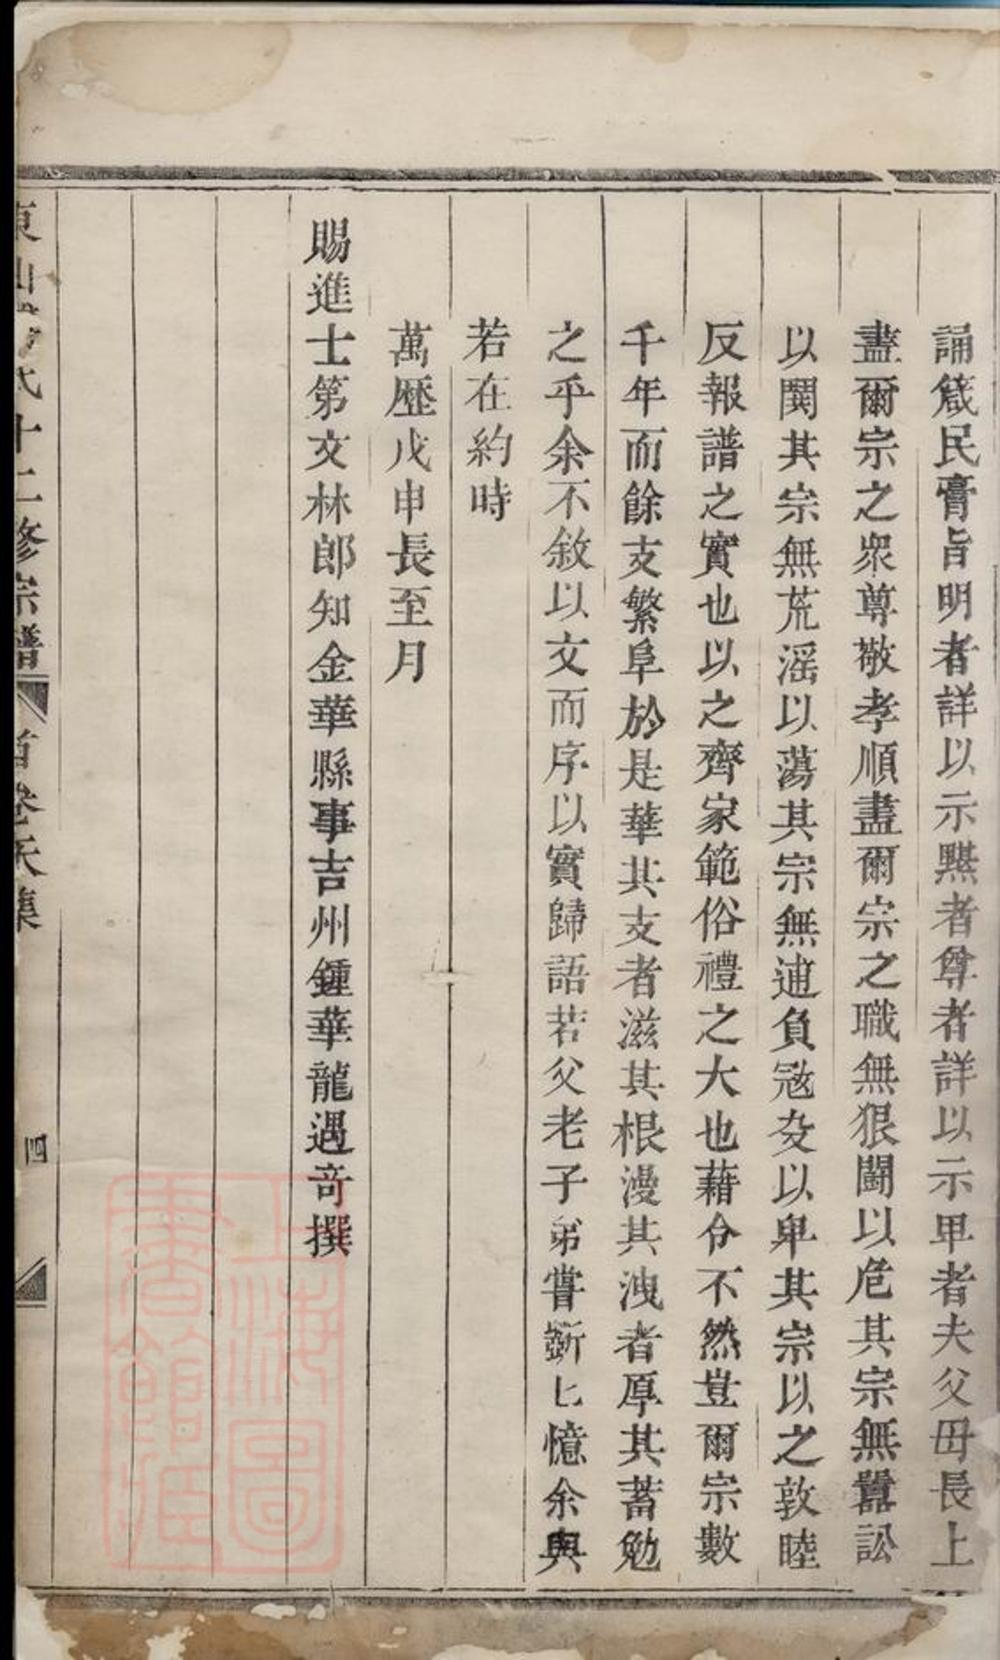 誦箴民膏旨明者詳以示黙者尊者詳以示卑者夫父毋長上
盡爾宗之衆尊敬孝順盡爾宗之職無狠鬭以危其宗無囂訟
以鬩其宗無荒滛以蕩其宗無逋負冦攻以卑其宗以之敦睦
反報譜之實也以之齊家範俗禮之大也藉令不然豈爾宗數
千年而餘支繁阜於是華其支者滋其根漫其洩者厚其蓄勉
之乎余不敘以文而序以實歸語若父老子弟嘗斷匕憶余與
若在約時
萬歷戊申長至月
賜進士第文林郎知金華縣事吉州鍾華龍遇竒撰
十二修宗譜
首卷天集
四
上海圖書館藏